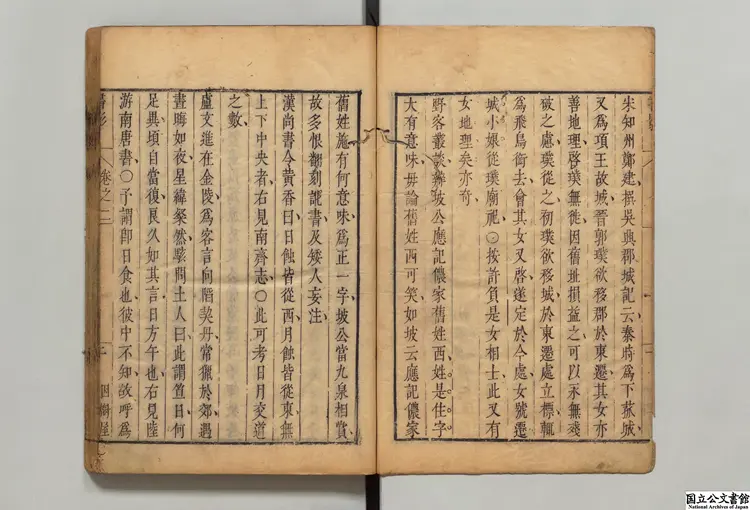 宋知州鄭建撰吳興郡城記云秦時為下菰城
又為項王故城晉郭璞欲移郡於東遷其女亦
善地理啓璞無徙因舊址損益之可以永無殘
破之慮璞從之初璞欲移城於東遷處立標輒
為飛鳥銜去會其女又啓遂定於今處女號遷
城小娘從璞廟祀〇按許負是女相士此又有
女地理矣亦奇
野客叢談辨坡公應記儂家舊姓西姓是住字
大有意味毋論舊姓西可笑如坡云應記儂家
舊姓施有何意味為正一字坡公當九泉相賞
故多恨翻刻訛書及矮人妄注
漢尚書令黃香曰日蝕皆從西月蝕皆從東無
上下中央者右見南齊志〇此可考日月交道
之數
盧文進在金陵為客言向陷契丹常獵於郊遇
晝晦如夜星緯粲然駭問土人曰此謂笪日何
足異頃自當復良久如其言日方午也右見陸
游南唐書〇予謂即日食也彼中不知故呼為
書影
卷之二
因樹屋
国立公文書館
National Archives of Japan